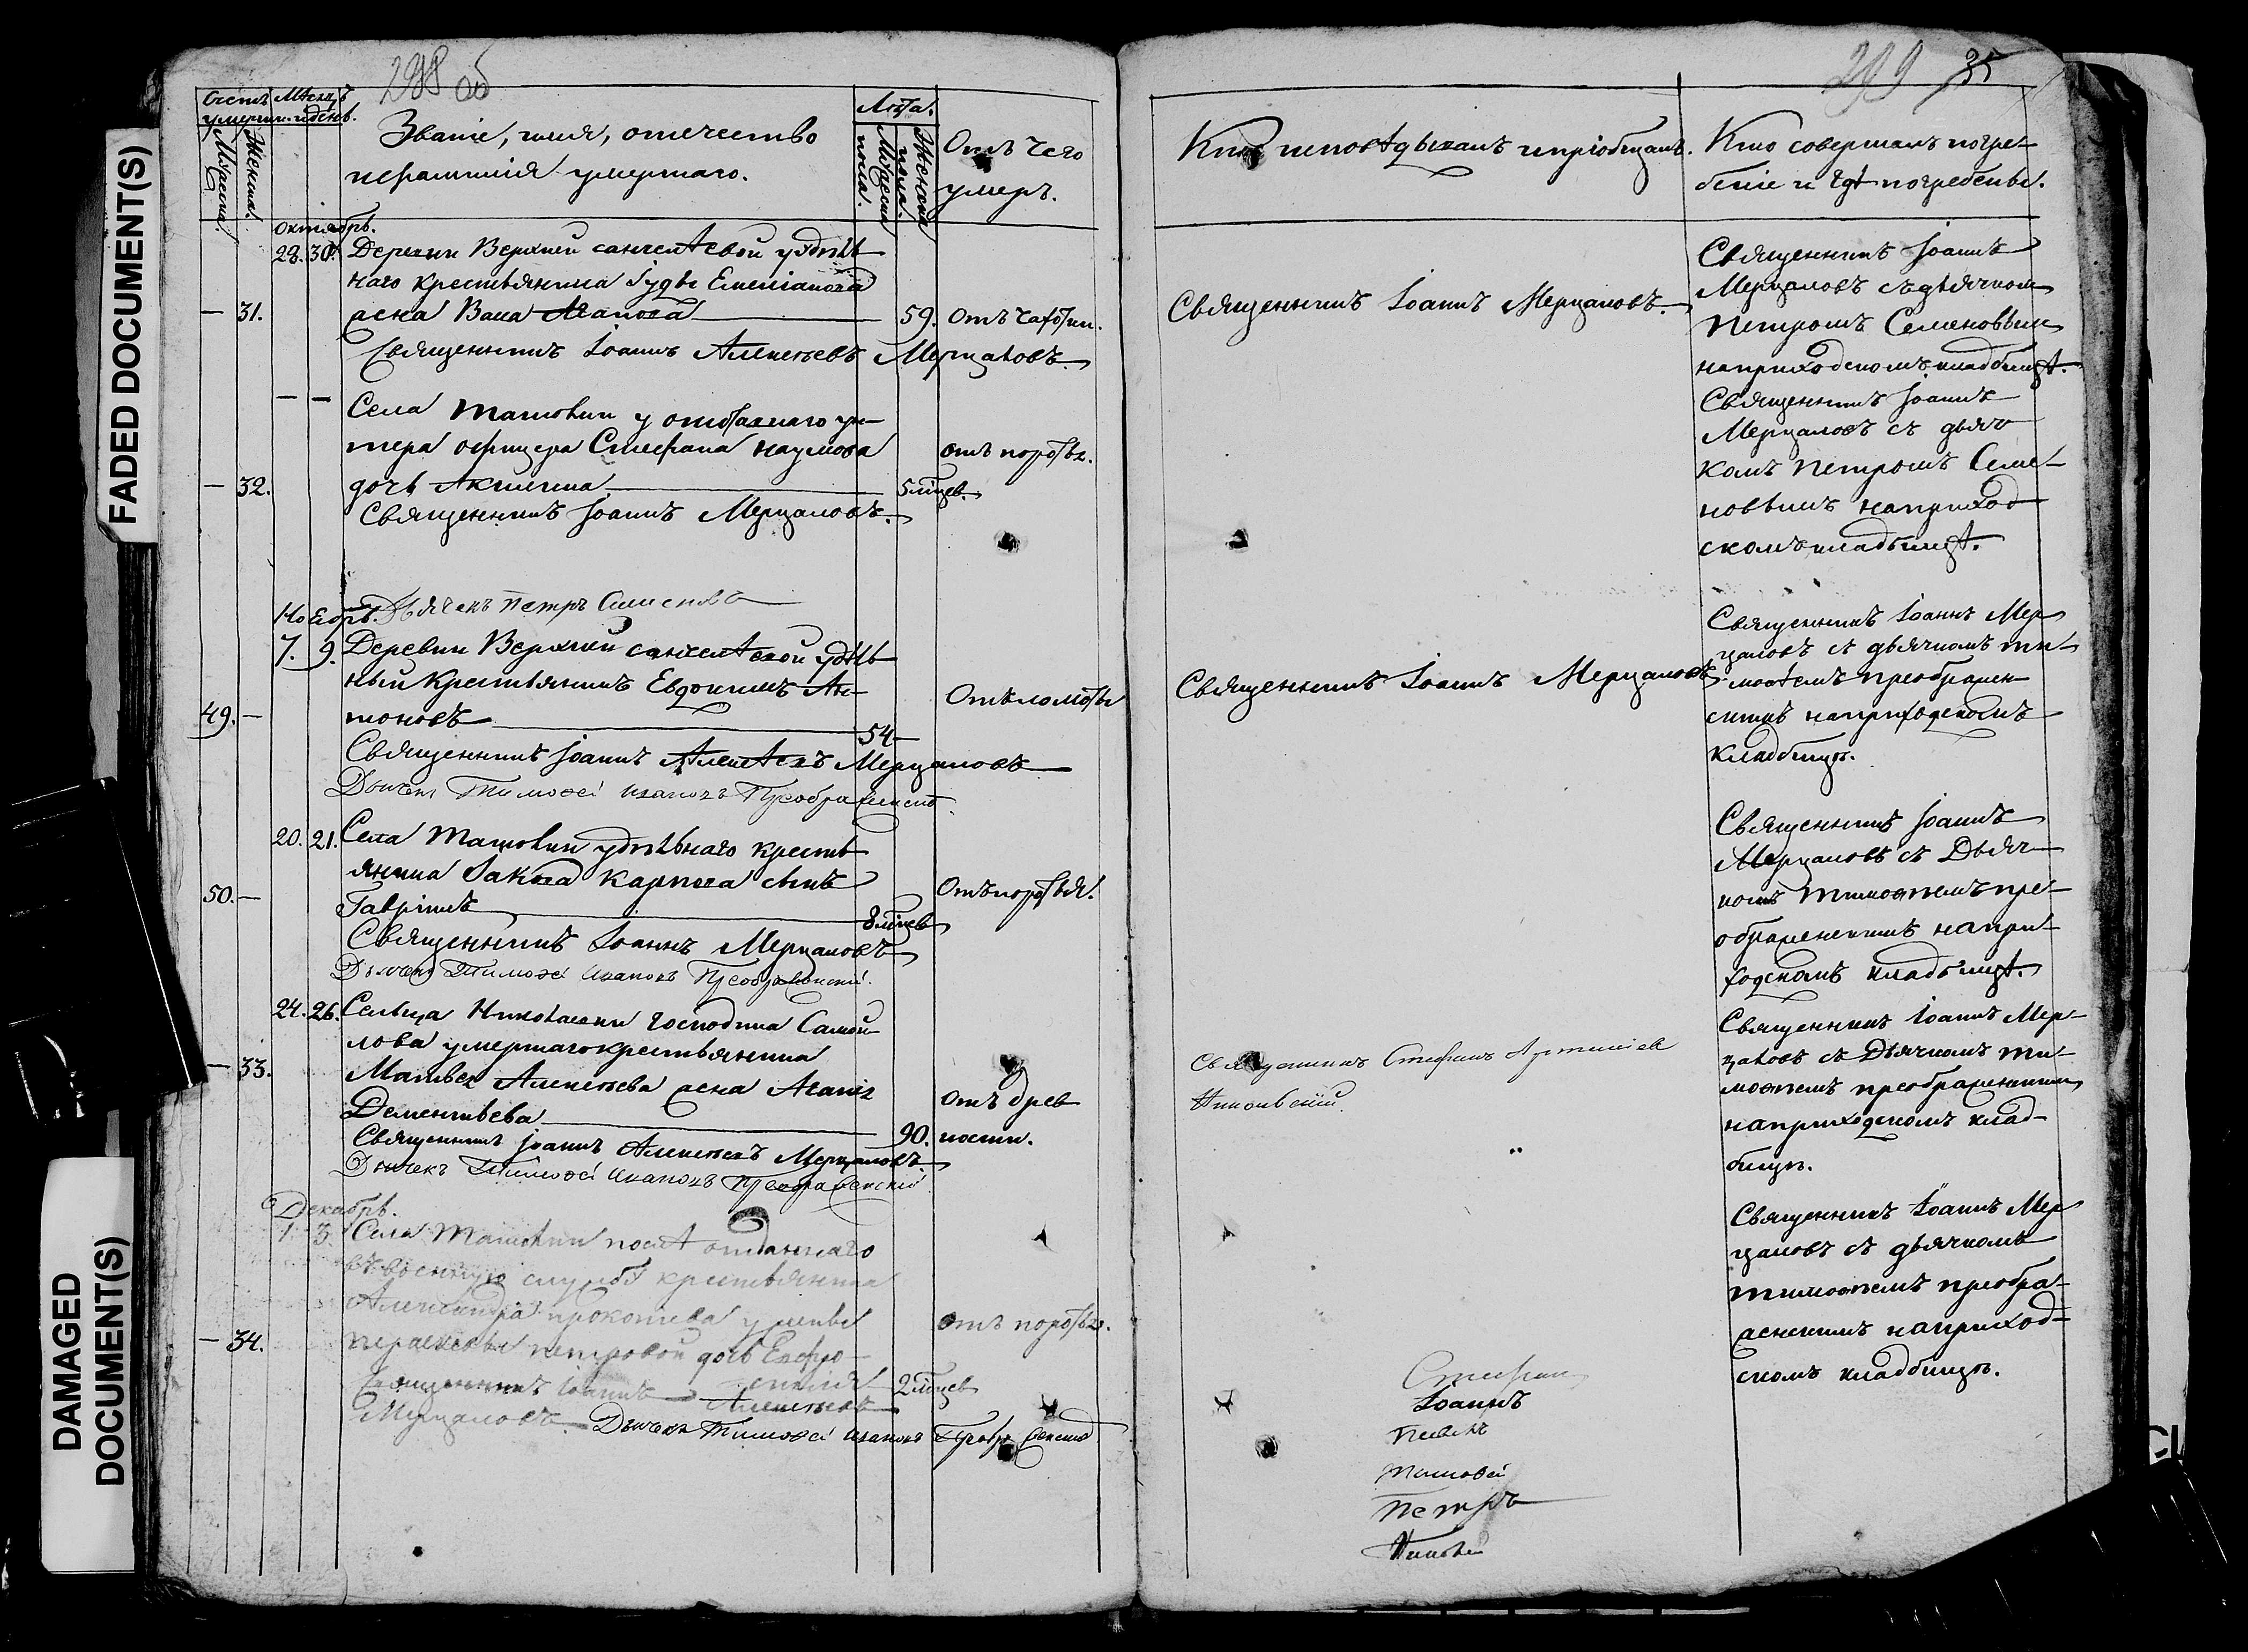 FADED DOCUMENT(S)
DAMAGED
DOCUMENT(S)
298 об
Счетъ умерш.
Мѣсяцъ и день.
Мужеска.
Женска.
Званіе, имя, отечество
и фамилія умершаго.
Лѣта.
Мужеска пола.
Женска пола.
Отъ чего
умеръ.
Октябрь.
28. 30. Деревни Верхней удѣль
наго крестьянина Іуды Емеліанова
— 31. жена Васса Агапова 59. Отъ чахотки.
Священникъ Іоаннъ Алексѣевъ Мерцаловъ.
— — Села Ташовки у отставнаго ун-
теръ офицера Стефана Наумова отъ поносу.
— 32. дочь Акилина 5 мѣцев.
Священникъ Іоаннъ Мерцаловъ.
Ноябрь. Дьячекъ Петръ Семеновъ
7. 9. Деревни Верхней удѣль
ный крестьянинъ Евдокимъ Ан-
49. — тоновъ 54 —
Священникъ Іоаннъ Алексѣевъ Мерцаловъ
Дьячекъ Тимоѳей Ивановъ Преображенскій
20. 21. Села Ташовки удѣльнаго кресть
янина Іакова Карпова сынъ
50. — Гавріилъ 8 мѣцев
Священникъ Іоаннъ Мерцаловъ
Дьячекъ Тимоѳей Ивановъ Преображенскій.
24. 26. Сельца Николаевки господина Самой-
лова умершаго крестьянина
— 33. Матвея Алексѣева жена Агапія
Дементьева 90. Отъ древ
ности.
Священникъ Іоаннъ Алексѣевъ Мерцаловъ.
Дьячекъ Тимоѳей Ивановъ Преображенскій
Декабрь.
1. 3. Села Ташовки послѣ отданнаго
въ военную службу крестьянина
Александра Прокопіева у жены
— 34. Параскевы Петровой дочь Евфро-
синія 2 мѣцев
Священникъ Іоаннъ Алексѣевъ
Мерцаловъ Дьячекъ Тимоѳей Ивановъ Преображенскій
299 35
Кто исповѣдывалъ и пріобщалъ.
Кто совершалъ погре-
беніе и гдѣ погребены.
Священникъ Іоаннъ Мерцаловъ.
Священникъ Іоаннъ
Мерцаловъ съ дьячком
Петромъ Семеновым
на приходскомъ кладбищѣ.
Священникъ Іоаннъ
Мерцаловъ съ дьяч
комъ Петромъ Семе-
новымъ на приход
скомъ кладбищѣ.
Священникъ Іоаннъ Мерцаловъ
Священникъ Іоаннъ Мер
цаловъ съ дьячкомъ Ти-
моѳеемъ Преображен
скимъ на приходскомъ
кладбищѣ.
Священникъ Іоаннъ
Мерцаловъ съ Дьяч-
комъ Тимоѳеемъ Пре-
ображенскимъ на при-
ходскомъ кладбищѣ.
Священникъ Стефанъ
Священникъ Іоаннъ Мер-
цаловъ съ Дьячкомъ Ти-
моѳеемъ Преображенским
на приходскомъ клад-
бищѣ.
Священникъ Іоаннъ Мер
цаловъ съ дьячкомъ
Тимоѳеемъ Преобра-
женскимъ на приход-
скомъ кладбищѣ.
Стефанъ
Іоаннъ
Тимоѳей
Петръ